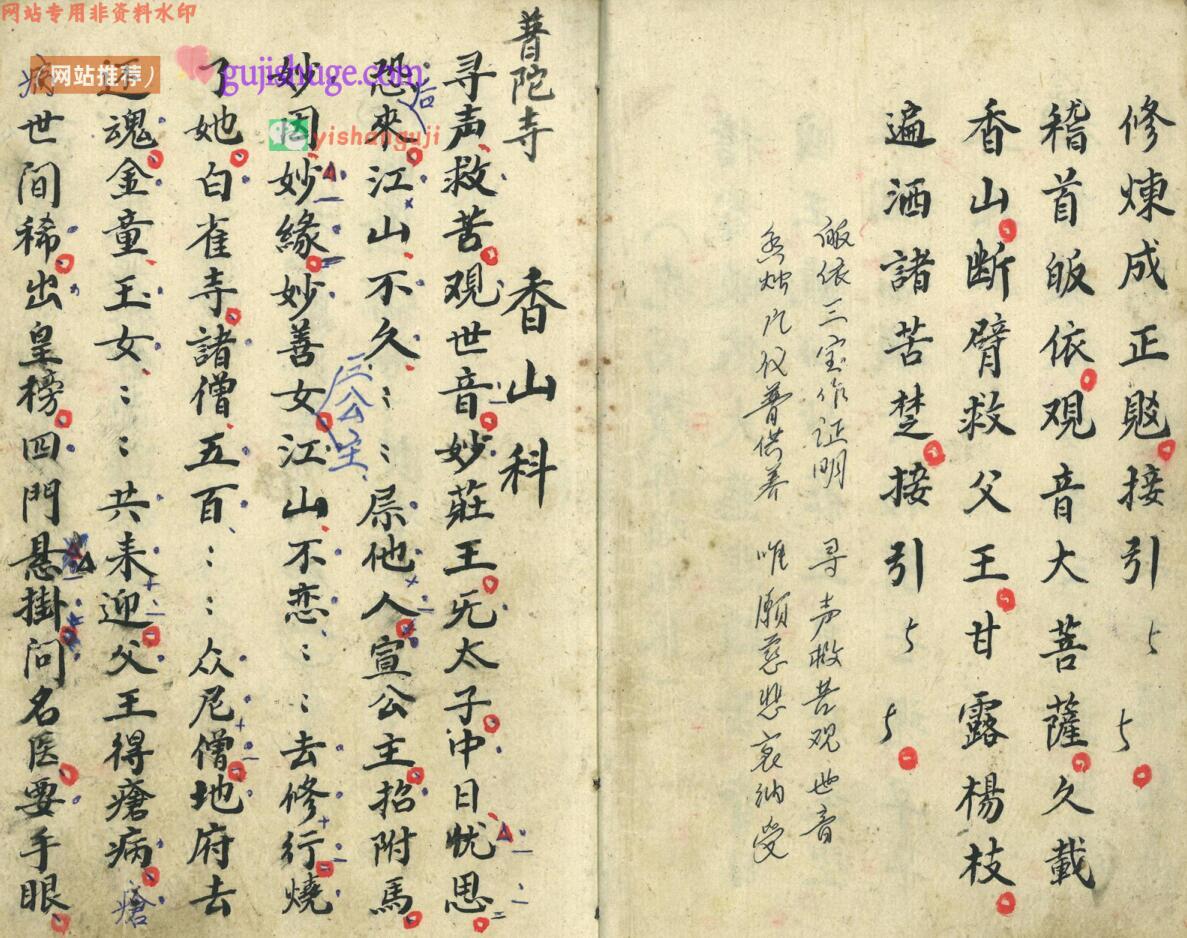 网站专用非资料水印
修煉成正覺接引
稽首皈依观音大菩薩久載
香山断臂救父王甘露楊枝
遍洒諸苦楚接引
皈依三宝作证明 寻声救苦观世音
香烛凡仪普供养 唯願慈悲哀納受
普陀寺
香山科
寻声救苦观世音妙莊王无太子冲日忧思
恐來江山不久：：屌他人宣公主招附馬
后
妙因妙緣妙善女江山不恋：：去修行燒
三公主
了她白雀寺諸僧五百：：众尼僧地府去
还魂金童玉女：：共来迎父王得瘡病
瘡
病世間稀出皇榜四門悬掛问名医要手眼
网站推荐）
gujishuge.com
yishanguji